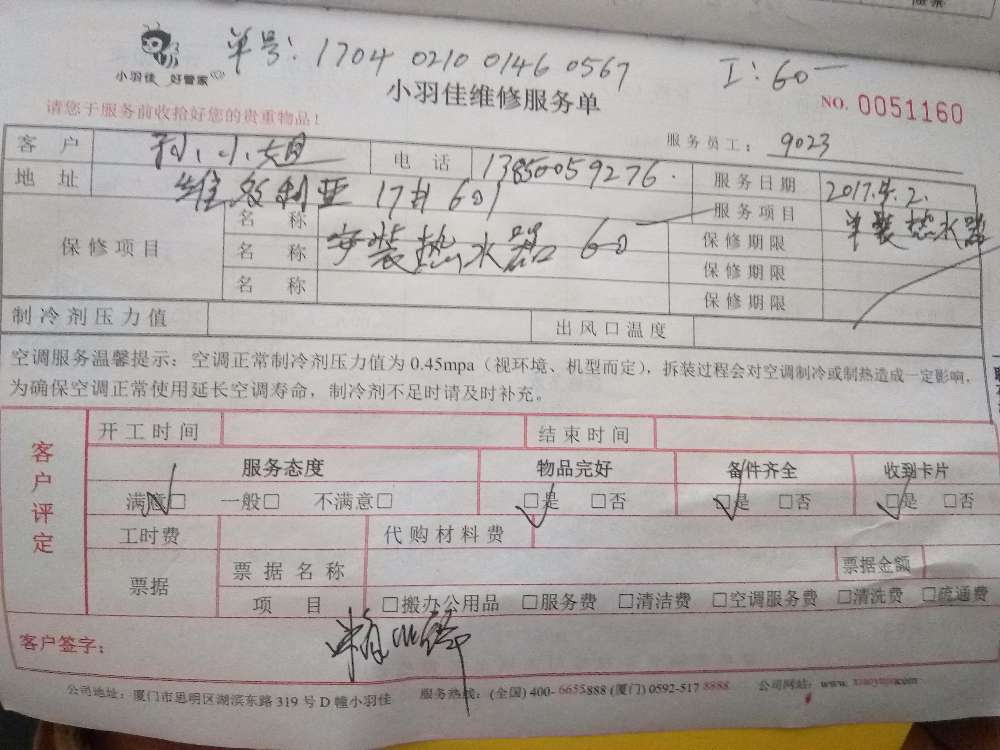 单号: 1704 0210 0146 0567 工: 60一
小羽佳 好管家
小羽佳维修服务单
NO. 0051160
请您于服务前收拾好您的贵重物品!
服务员工: 9023
客户 小姐 电话 13850059276. 服务日期 2017.4.2.
地址 维多利亚 17# 601 服务项目 单装热水器
保修项目 名称 保修期限
名称 安装热水器 60 保修期限
名称 保修期限
制冷剂压力值 出风口温度
空调服务温馨提示: 空调正常制冷剂压力值为 0.45mpa (视环境、机型而定), 拆装过程会对空调制冷或制热造成一定影响,
为确保空调正常使用延长空调寿命, 制冷剂不足时请及时补充。
客户评定
开工时间 结束时间
服务态度 物品完好 备件齐全 收到卡片
满意□ 一般□ 不满意□ □是 □否 □是 □否 □是 □否
工时费 代购材料费
票据 票据名称 票据金额
项目 □搬办公用品 □服务费 □清洁费 □空调服务费 □清洗费 □疏通费
客户签字:
公司地址: 厦门市思明区湖滨东路 319 号 D 幢小羽佳 服务热线: (全国) 400-6655888 (厦门) 0592-517 8888 公司网站: www.